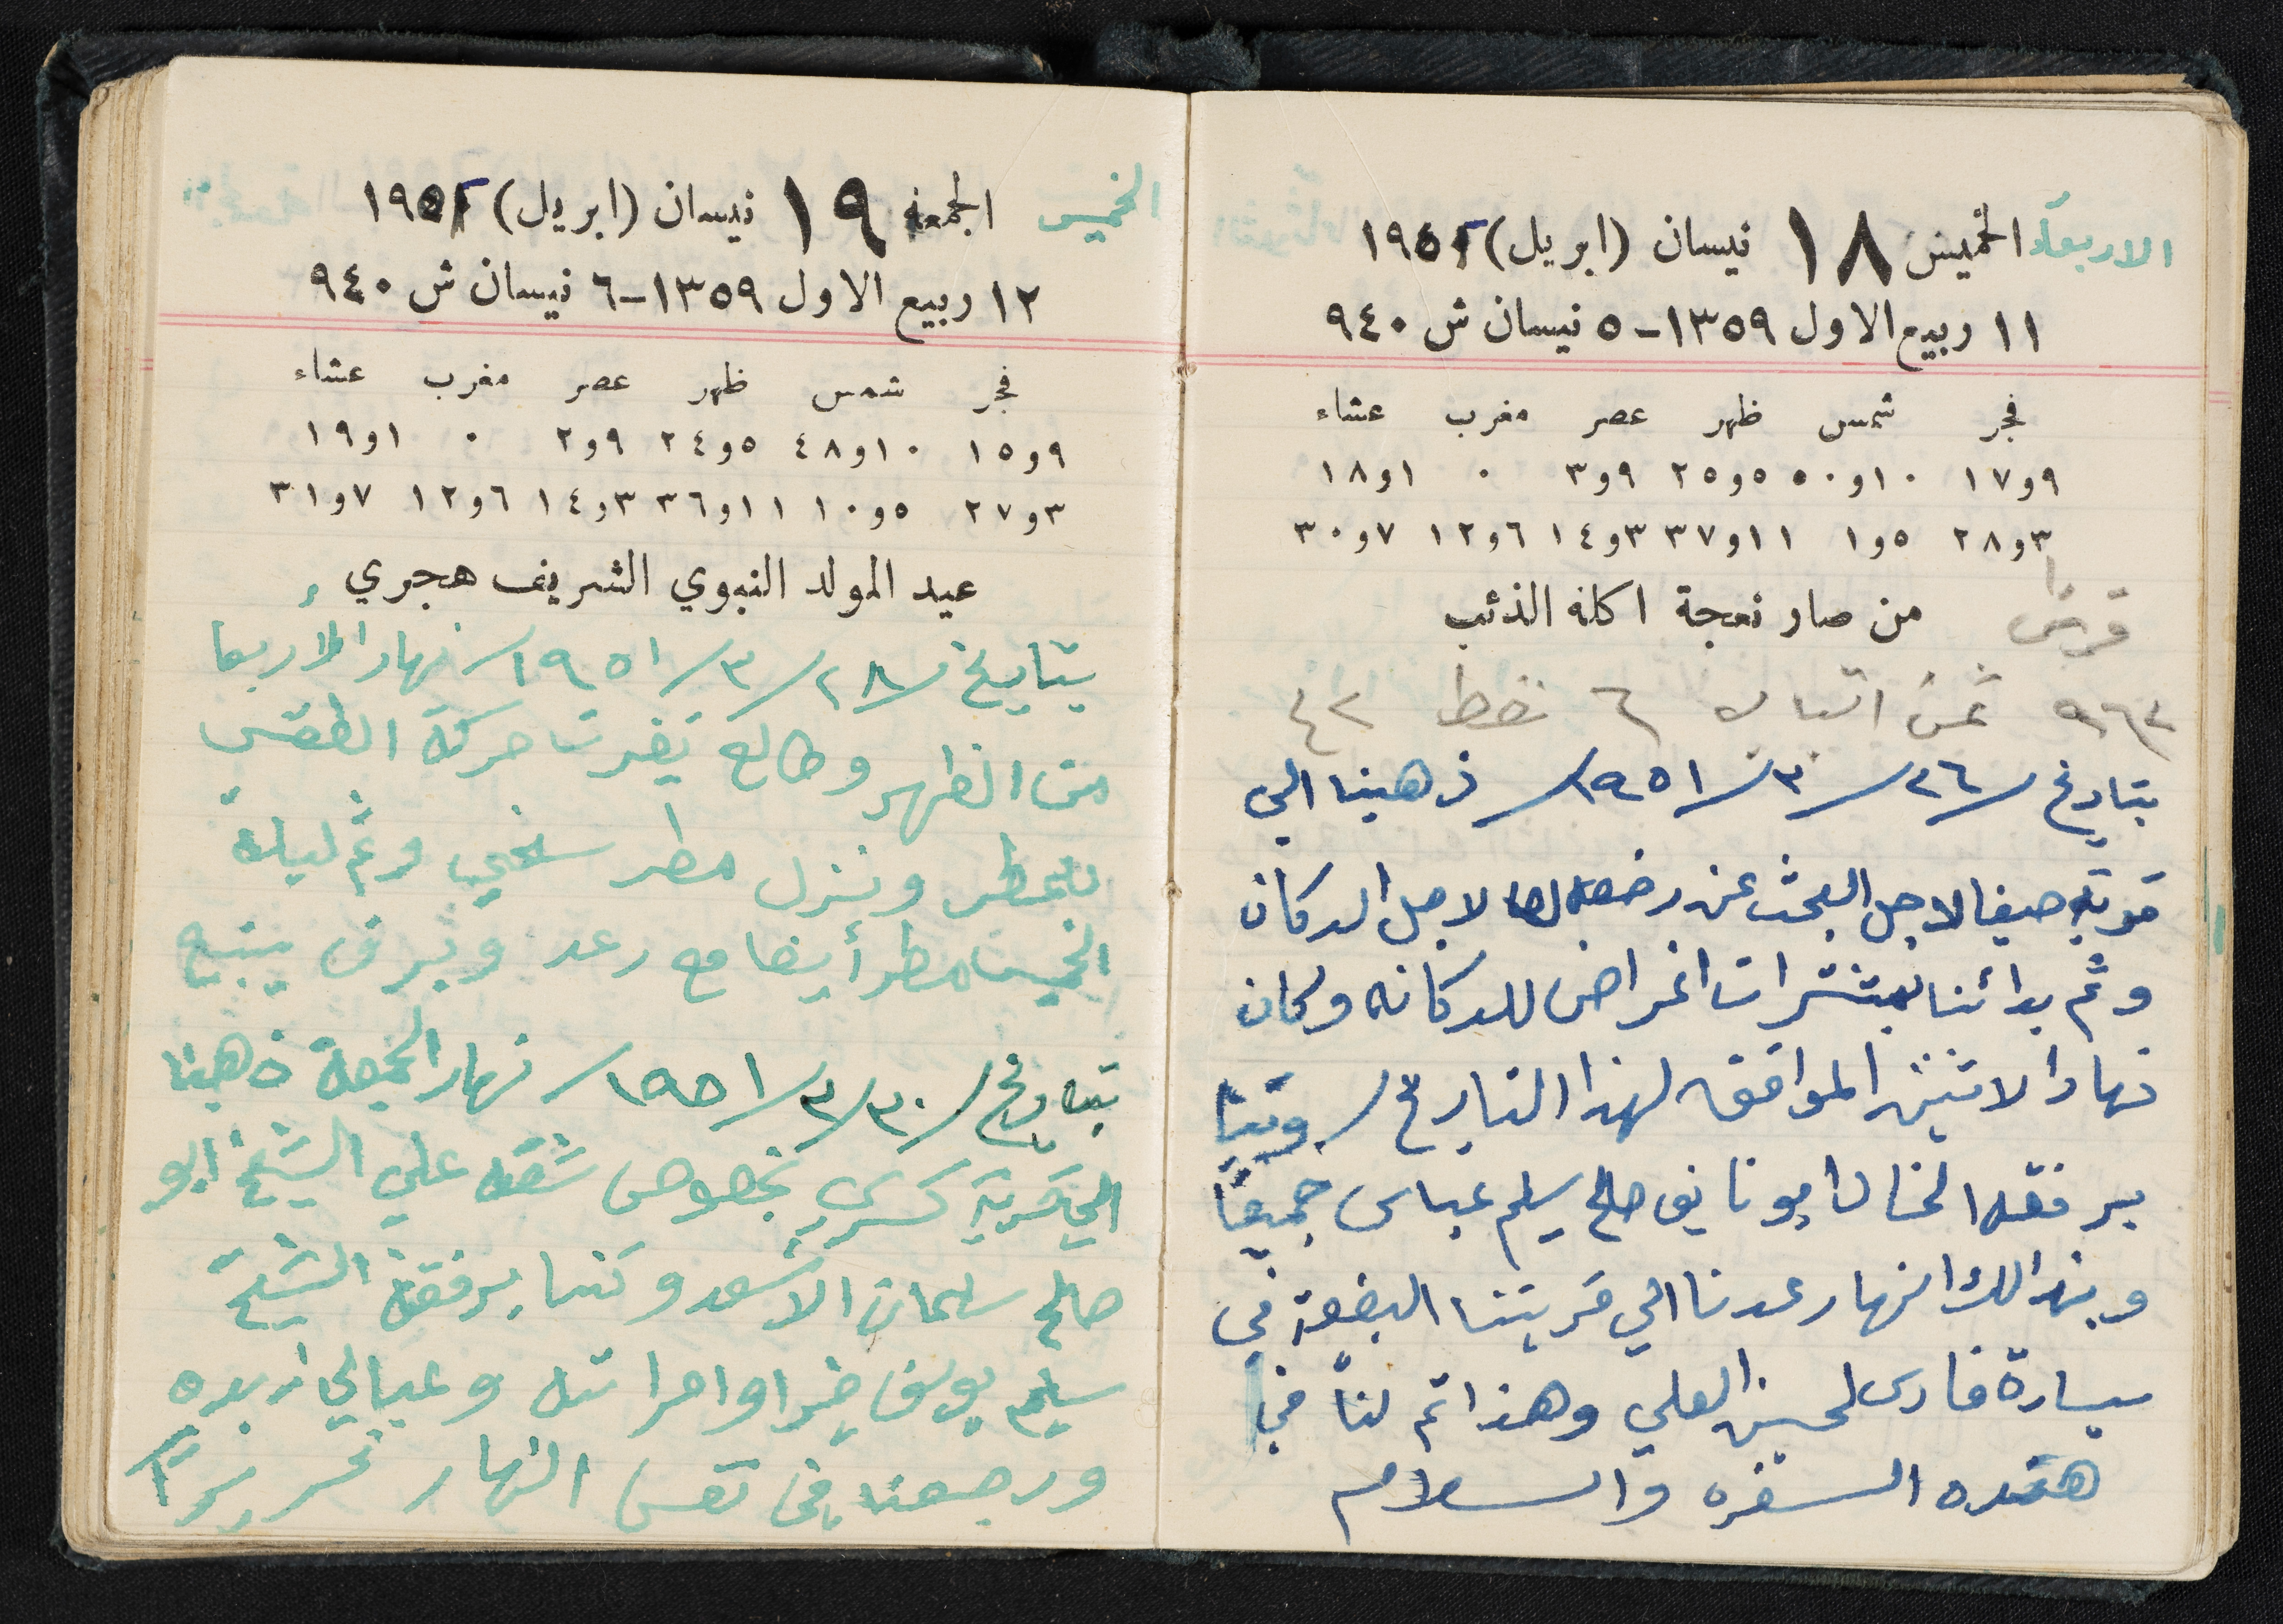 الاربعاء الخميس ١٨ نيسان (ابريل) ١٩٥١
١١ ربيع الاول ١٣٥٩-٥ نيسان ش ٩٤٠
فجر شمس ظهر عصر مغرب عشاء
٩و١٧ ١٠و٥٠ ٥و٢٥ ٩و٣ ٠ ١و١٨
٣و٢٨ ٥و١ ١١و٣٧ ٣و١٤ ٦و١٢ ٧و٣٠
قرش من صار نعجة اكله الذئب
ثمن ٦
بتاريخ /٢٦/٣/١٩٥١/ ذهبنا الي
حيفا لاجل البحث عن رخصه لاجل الدكان
وثم بدائنا بمشترات اغراض للدكانه وكان
نهار الاثنين الموافق لهذا التاريخ/
برفقه الخال ابو نايف صالح سليم عباس جميعاً
وبذالك النهار عدنا الي قريتنا البضعة في
سيارة فارس لحسين العلي وهذا تم لناً في
هذه السفره والسلام
الخميس الجمعه ١٩ نيسان (ابريل) ١٩٥١
١٢ ربيع الاول ١٣٥٩-٦ نيسان ش ٩٤٠
فجر شمس ظهر عصر مغرب عشاء
٩و١٥ ١٠و٤٨ ٥و٢٤ ٩و٢ ٠ ١و١٩
٣و٢٧ ٥و١٠ ١١و٣٦ ٣و١٤ ٦و١٢ ٧و٣١
عيد المولد النبوي الشريف هجري
بتاريخ /٢٨/٣/١٩٥١/ نهار الاربعاء
من الظهر وطالع تغيرت حركة الطقس
ونزل مطر سخي وثم ليلة
الخميس مطر أيضا مع رعد وبرق
بتاريخ /٣٠/٣/١٩٥١/ نهار الجمعة ذهبنا
الي قرية كسرى بخصوص شقه علي الشيخ ابو
صالح سلمان الاسعد وكنا برفقة الشيخ
سليم يوسف خير وامراته وعيالي زبده
ورجعنا في نفس النهار تحريراً